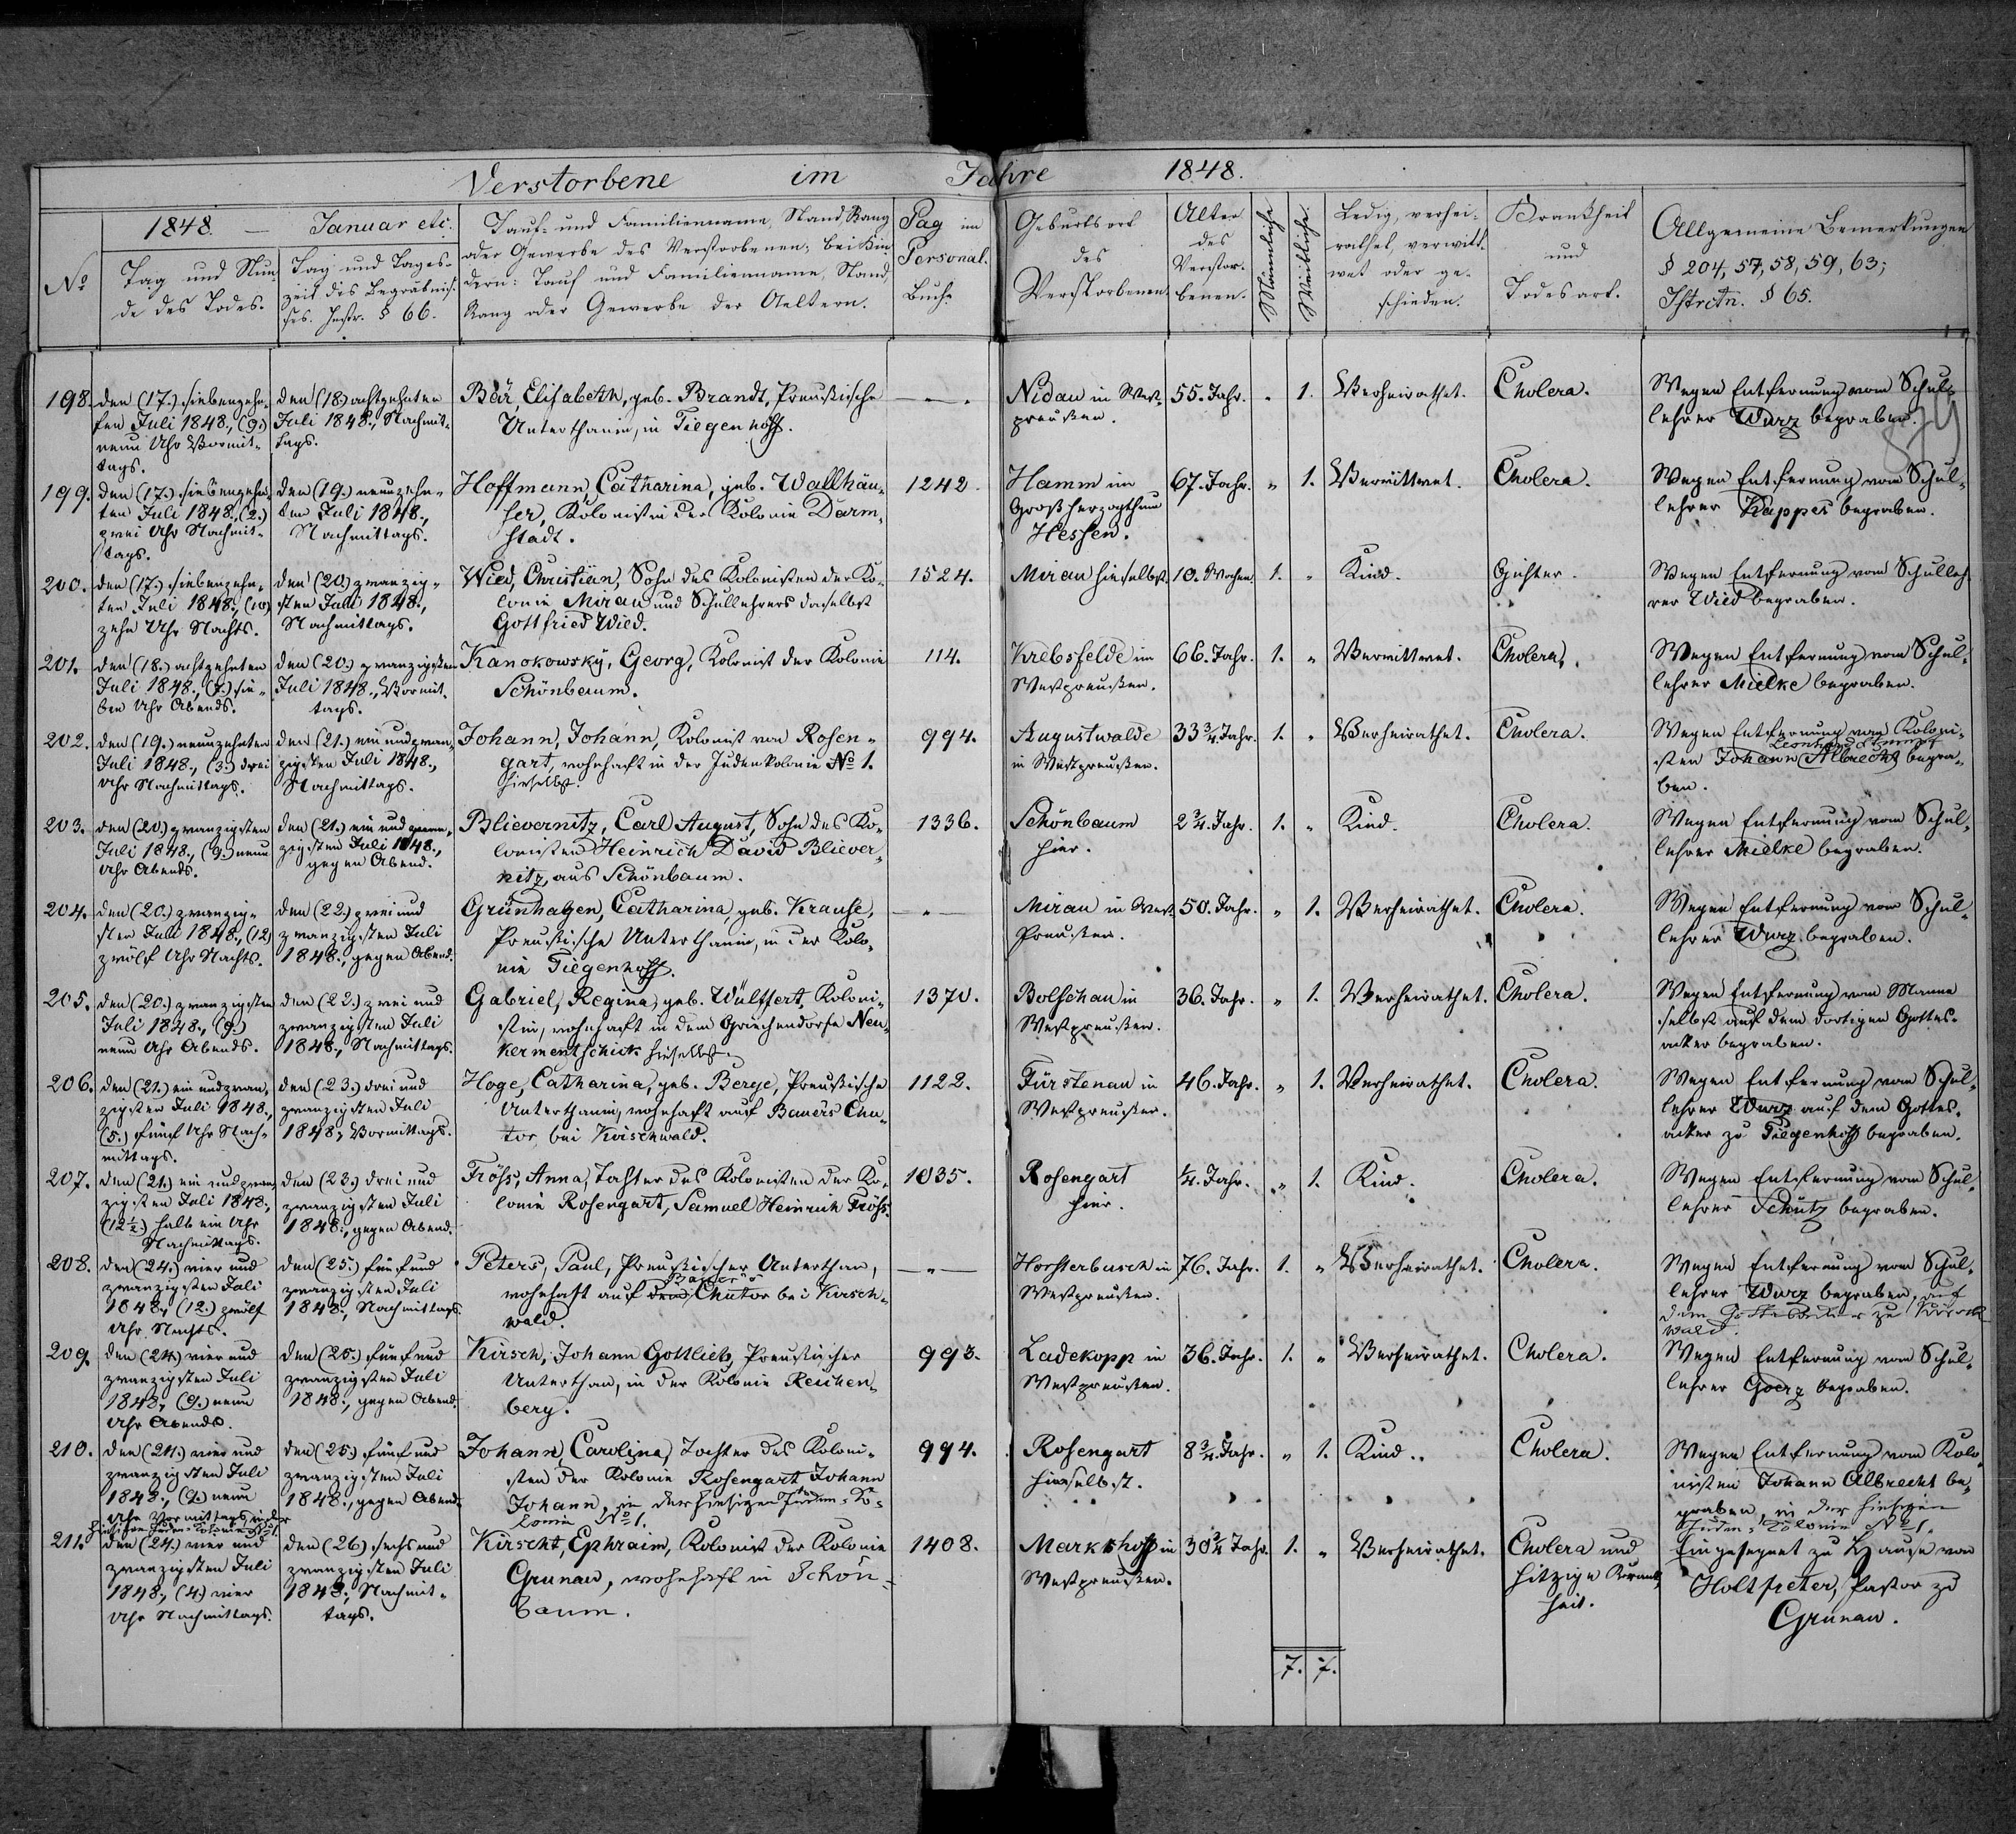 Verstorbene im Jahre 1848.
1848. — Januar etc.
No
Tag und Stun-
de des Todes.
Tag und Tages-
zeit des Begräbnis-
ses. Instr. § 66.
Tauf- und Familienname, Stand, Rang
oder Gewerbe des Verstorbenen; bei Kin-
dern: Tauf und Familienname, Stand,
Rang oder Gewerbe der Aeltern.
Pag im
Personal-
Buch.
Geburtsort
des
Verstorbenen.
Alter
des
Verstor-
benen.
Männliche
Weibliche.
Ledig, verhei-
rathet, verwitt-
wet oder ge-
schieden.
Krankheit
und
Todesart.
Allgemeine Bemerkungen
§ 204, 57, 58, 59, 63;
Istrctn. § 65.
198.
den (17.) siebenzehn-
ten Juli 1848., (9.)
neun Uhr Vormit-
tags.
den (18.) achtzehnten
Juli 1848., Nachmit-
tags.
Bär, Elisabeth, geb. Brandt, Preußische
Unterthanin, in Tiegenhoff.
— „ .
Nidau in West-
preußen.
55. Jahr.
„
1.
Verheirathet.
Cholera.
Wegen Entfernung vom Schul-
lehrer Wurz begraben.
199.
den (17.) siebenzehn-
ten Juli 1848., (2.)
zwei Uhr Nachmit-
tags.
den (19.) neunzehn-
ten Juli 1848.,
Nachmittags.
Hoffmann, Catharina, geb. Wallhäu-
ser, Kolonistin der Kolonie Darm-
stadt.
1242.
Hamm im
Großherzogthum
Hessen.
67. Jahr.
„
1.
Verwittwet.
Cholera.
Wegen Entfernung vom Schul-
lehrer Kappes begraben.
200.
den (17.) siebenzehn-
ten Juli 1848., (10)
zehn Uhr Nachts.
den (20.) zwanzig-
sten Juli 1848.,
Nachmittags.
Wied, Christian, Sohn des Kolonisten der Ko-
lonie Mirau und Schullehrers daselbst
Gottfried Wied.
1524.
Mirau hieselbst.
10. Wochen
1.
„
Kind.
Gichter.
Wegen Entfernung vom Schulleh-
rer Wied begraben.
201.
den (18.) achtzehnten
Juli 1848., (7.) sie-
ben Uhr Abends.
den (20.) zwanzigsten
Juli 1848., Vormit-
tags.
Kanokowsky, Georg, Kolonist der Kolonie
Schönbaum.
114.
Krebsfelde im
Westpreußen.
66. Jahr.
1.
„
Verwittwet.
Cholera.
Wegen Entfernung vom Schul-
lehrer Mielke begraben.
202.
den (19.) neunzehnten
Juli 1848., (3.) drei
Uhr Nachmittags.
den (21.) ein und zwan-
zigsten Juli 1848.,
Nachmittags.
Johann, Johann, Kolonist von Rosen-
gart, wohnhaft in der Judenkolonie No 1.
hieselbst.
994.
Augustwalde
in Westpreußen.
33 3/4. Jahr.
1.
„
Verheirathet.
Cholera.
Wegen Entfernung vom Koloni-
sten Johann Albrecht begra-
ben.
203.
den (20.) zwanzigsten
Juli 1848., (9.) neun
Uhr Abends.
den (21.) ein und zwan-
zigsten Juli 1848.,
gegen Abend.
Blievernitz, Carl August, Sohn des Ko-
lonisten Heinrich David Bliever-
nitz, aus Schönbaum.
1336.
Schönbaum
hier.
2 3/4. Jahr.
1.
„
Kind.
Cholera.
Wegen Entfernung vom Schul-
lehrer Mielke begraben.
204.
den (20.) zwanzig-
sten Juli 1848., (12)
zwölf Uhr Nachts.
den (22.) zwei und
zwanzigsten Juli
1848., gegen Abend.
Grünhagen, Catharina, geb. Krause,
Preußische Unterthanin, in der Kolo-
nie Tiegenhoff.
— „ —
Mirau in West-
Preußen.
50. Jahr.
„
1.
Verheirathet.
Cholera.
Wegen Entfernung vom Schul-
lehrer Wurz begraben.
205.
den (20.) zwanzigsten
Juli 1848., (9.)
neun Uhr Abends.
den (22.) zwei und
zwanzigsten Juli
1848., Nachmittags.
Gabriel, Regina, geb. Wülffert, Koloni-
stin, wohnhaft in dem Griechendorfe Neu-
kermentschick hieselbst.
1370.
Bolschau in
Westpreußen.
36. Jahr.
„
1.
Verheirathet.
Cholera.
Wegen Entfernung vom Manne
selbst auf dem dortigen Gottes-
acker begraben.
206.
den (21.) ein und zwan-
zigsten Juli 1848.,
(5.) fünf Uhr Nach-
mittags.
den (23.) drei und
zwanzigsten Juli
1848., Vormittags.
Hoge, Catharina, geb. Berge, Preußische
Unterthanin, wohnhaft auf Bauers Chu-
tor, bei Kirschwald.
1122.
Fürstenau in
Westpreußen.
46. Jahr.
„
1.
Verheirathet.
Cholera.
Wegen Entfernung vom Schul-
lehrer Wurz auf dem Gottes-
acker zu Tiegenhoff begraben.
207.
den (21.) ein und zwan-
zigsten Juli 1848.,
(12½) halb ein Uhr
Nachmittags.
den (23.) drei und
zwanzigsten Juli
1848., gegen Abend.
Fröse, Anna, Tochter des Kolonisten der Ko-
lonie Rosengart, Samuel Heinrich Fröse.
1035.
Rosengart
hier.
¼. Jahr.
„
1.
Kind.
Cholera.
Wegen Entfernung vom Schul-
lehrer Schütz begraben.
208.
den (24.) vier und
zwanzigsten Juli
1848., (12.) zwölf
Uhr Nachts.
den (25.) fünf und
zwanzigsten Juli
1848., Nachmittags.
Peters, Paul, Preußischer Unterthan,
Bauers
wohnhaft auf dem Chutor bei Kirsch-
wald.
— „ —
Horsterbusch in
Westpreußen.
76. Jahr.
1.
„
Verheirathet.
Cholera.
Wegen Entfernung vom Schul-
lehrer Wurz begraben, auf
dem Gottesacker zu Kirsch-
wald.
209.
den (24.) vier und
zwanzigsten Juli
1848., (9.) neun
Uhr Abends.
den (25.) fünf und
zwanzigsten Juli
1848., gegen Abend.
Kirsch, Johann Gottlieb, Preußischer
Unterthan, in der Kolonie Reichen-
berg.
993.
Ladekopp in
Westpreußen.
36. Jahr.
1.
„
Verheirathet.
Cholera.
Wegen Entfernung vom Schul-
lehrer Goerz begraben.
210.
den (24.) vier und
zwanzigsten Juli
1848., (9.) neun
Uhr Vormittags, in der
hiesigen Juden-Kolonie No 1.
den (25.) fünf und
zwanzigsten Juli
1848., gegen Abend.
Johann, Carolina, Tochter des Koloni-
sten der Kolonie Rosengart Johann
Johann, in der hiesigen Juden-Ko-
lonie No 1.
994.
Rosengart
hieselbst.
8 3/4. Jahr.
„
1.
Kind.
Cholera.
Wegen Entfernung vom Kolo-
nisten Johann Albrecht be-
graben in der hiesigen
Juden-Kolonie No 1.
211.
den (24.) vier und
zwanzigsten Juli
1848., (4.) vier
Uhr Nachmittags.
den (26.) sechs und
zwanzigsten Juli
1848., Nachmit-
tags.
Kirscht, Ephraim, Kolonist der Kolonie
Grunau, wohnhaft in Schön-
baum.
1408.
Markshoff in
Westpreußen.
30 3/4 Jahr.
1.
„
Verheirathet.
Cholera und
hitzige Krank-
heit.
Eingesegnet zu Hause von
Holtfreter, Pastor zu
Grunau.
7. 7.